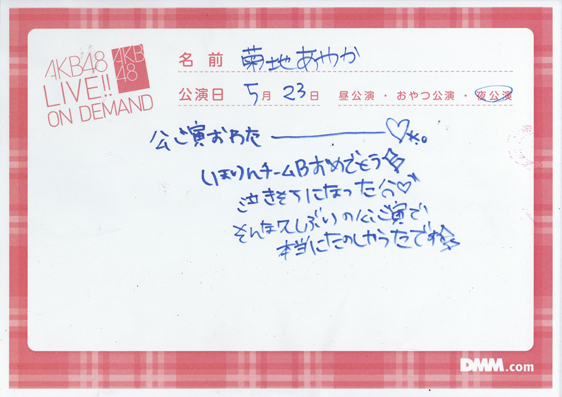 AKB48
LIVE!!
ON DEMAND
AKB
48
名前 菊地あやか
公演日 5月23日 昼公演・おやつ公演・夜公演
公演おわた
いほりんチームBおめでとう
泣きそうになった
そんな久しぶりの公演で
本当にたのしかったです
DMM.com